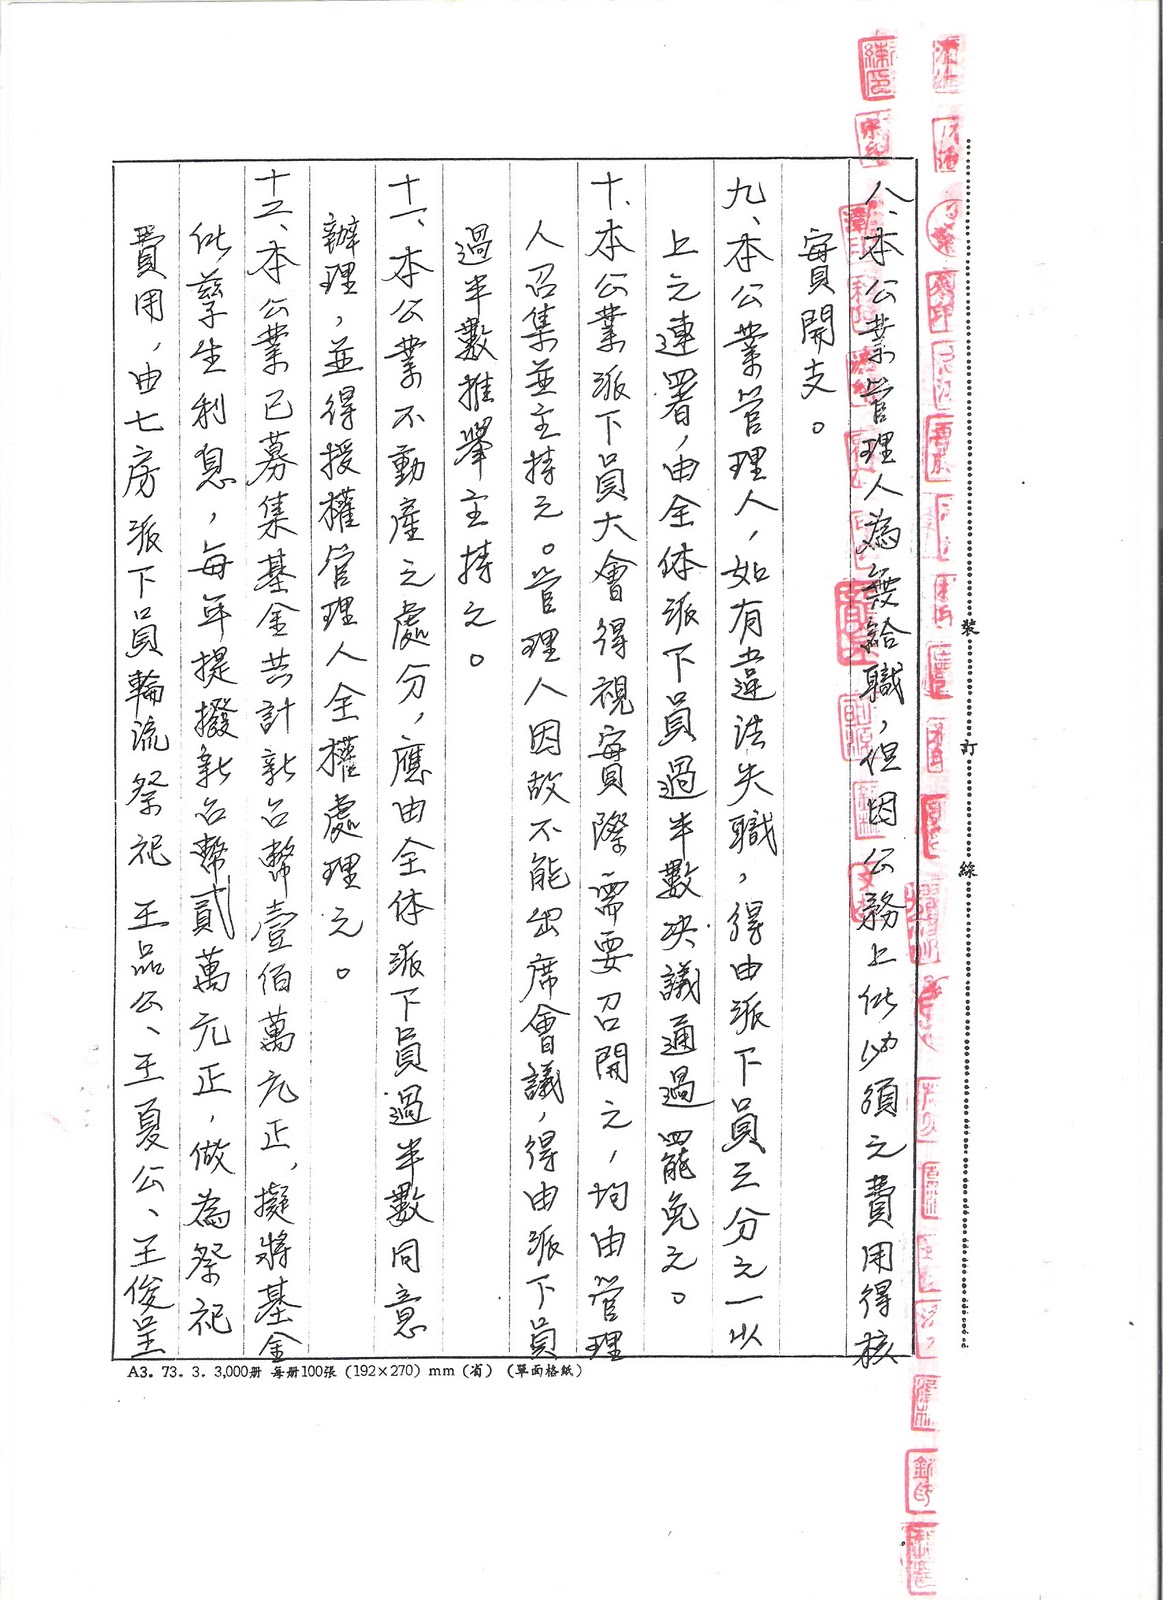 八、本公業管理人為無給職，但因公務上所必須之費用得核
實開支。
九、本公業管理人，如有違法失職，得由派下員三分之一以
上之連署，由全体派下員過半數決議通過罷免之。
十、本公業派下員大會得視實際需要召開之，均由管理
人召集並主持之。管理人因故不能出席會議，得由派下員
過半數推舉主持之。
十一、本公業不動產之處分，應由全体派下員過半數同意
辦理，並得授權管理人全權處理之。
十二、本公業已募集基金共計新台幣壹佰萬元正，擬將基金
所孳生利息，每年提撥新台幣貳萬元正，做為祭祀
費用，由七房派下員輪流祭祀王品公、王夏公、王俊呈
裝
訂
線
A3. 73. 3. 3,000冊 每冊100張 (192×270) mm (省) (單面格紙)